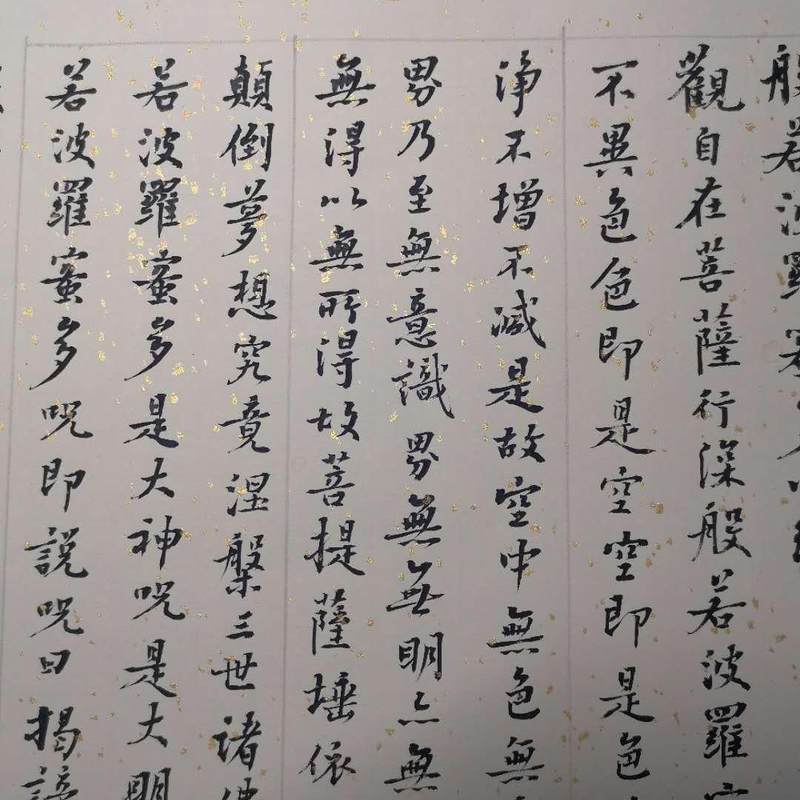 般若波羅
觀自在菩薩行深般若波羅
不異色色即是空空即是色
淨不增不減是故空中無色無
界乃至無意識界無無明亦無
無得以無所得故菩提薩埵依
顛倒夢想究竟涅槃三世諸佛
若波羅蜜多是大神咒是大明
若波羅蜜多咒即說咒曰揭諦